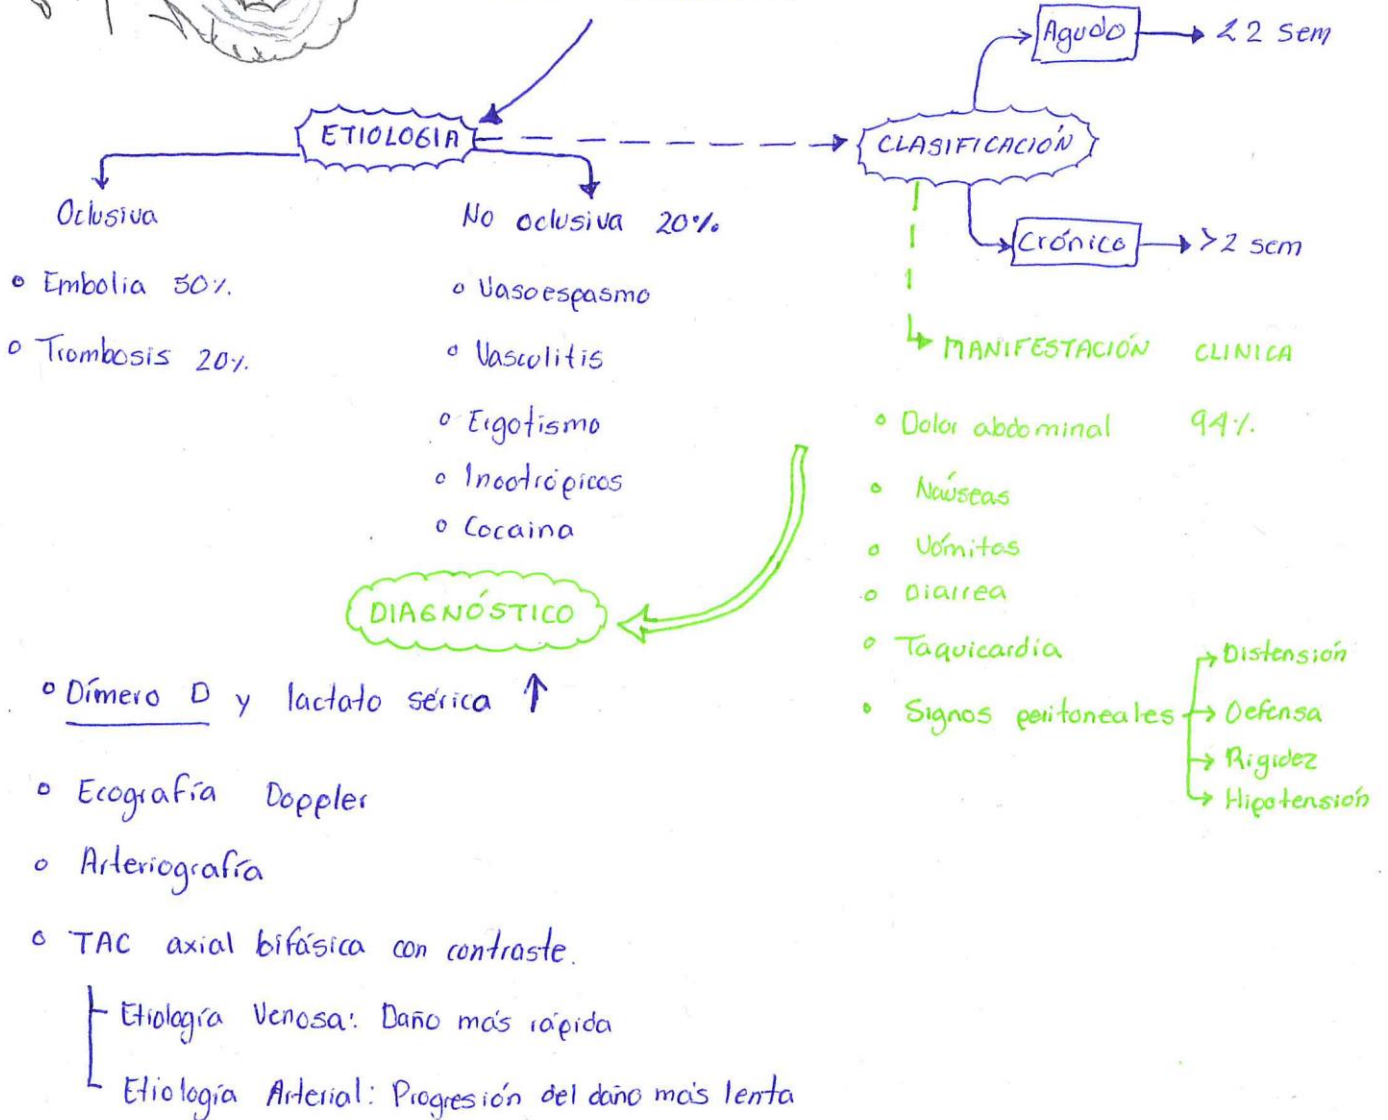 ETIOLOGIA
Oclusiva
• Embolia 50%.
• Trombosis 20%.
No oclusiva 20%.
• Vasoespasmo
• Vasculitis
• Ergotismo
• Inootrópicos
• Cocaina
CLASIFICACIÓN
Agudo → < 2 sem
Crónico → > 2 sem
MANIFESTACIÓN CLINICA
• Dolor abdominal 94%.
• Naúseas
• Vómitos
• Diarrea
• Taquicardia
• Signos peritoneales
→ Distensión
→ Defensa
→ Rigidez
→ Hipotensión
DIAGNÓSTICO
• Dímero D y lactato sérica ↑
• Ecografía Doppler
• Arteriografía
• TAC axial bifásica con contraste.
Etiología Venosa: Daño más rápida
Etiología Arterial: Progresión del daño más lenta